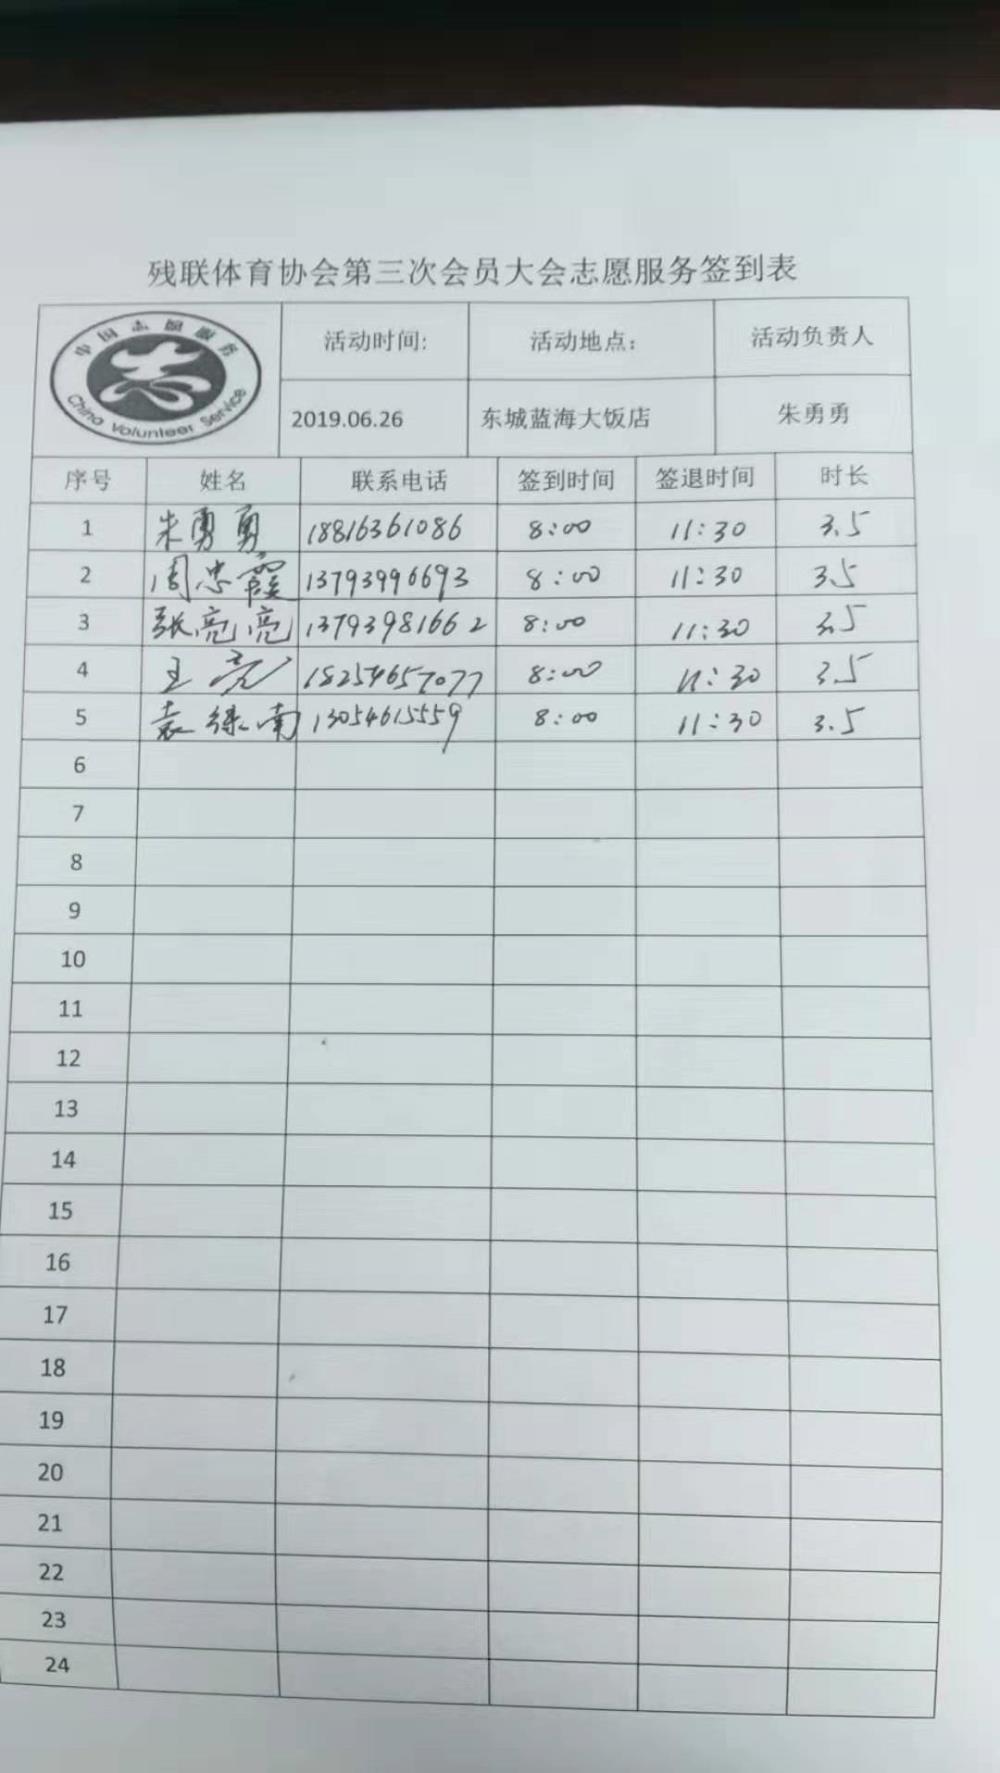 残联体育协会第三次会员大会志愿服务签到表
中国志愿服务
China Volunteer Service
活动时间: 活动地点: 活动负责人
2019.06.26 东城蓝海大饭店 朱勇勇
序号 姓名 联系电话 签到时间 签退时间 时长
1 朱勇勇 18816361086 8:00 11:30 3.5
2 周忠霞 13793996693 8:00 11:30 3.5
3 张亮亮 13793981662 8:00 11:30 3.5
4 王亮 18254657077 8:00 11:30 3.5
5 袁绿南 13054615559 8:00 11:30 3.5
6
7
8
9
10
11
12
13
14
15
16
17
18
19
20
21
22
23
24